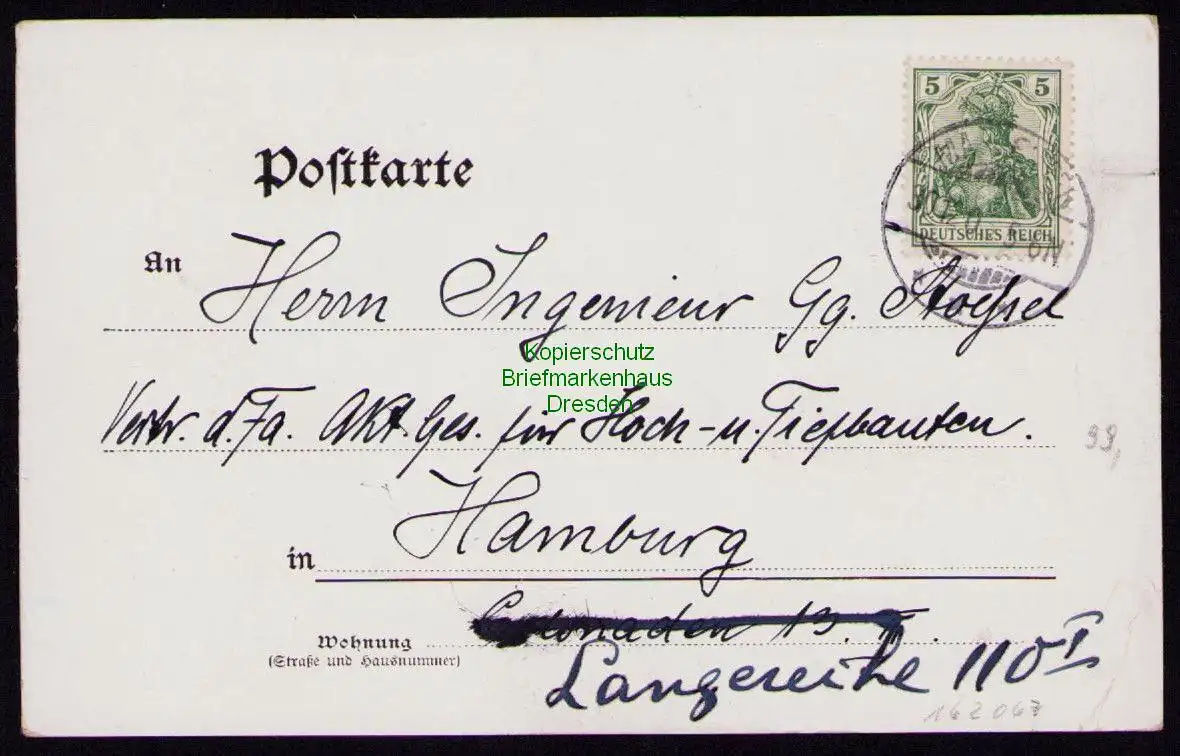 5 5
DEUTSCHES REICH
Postkarte
An
Herrn Ingenieur Gg. Stoessel
Kopierschutz
Briefmarkenhaus
Dresden
Vertr. d. Fa. Akt. Ges. für Hoch- u. Tiefbauten.
99,
in Hamburg
Colonaden 13. I.
Wohnung
(Straße und Hausnummer)
Langereihe 110 I
162067